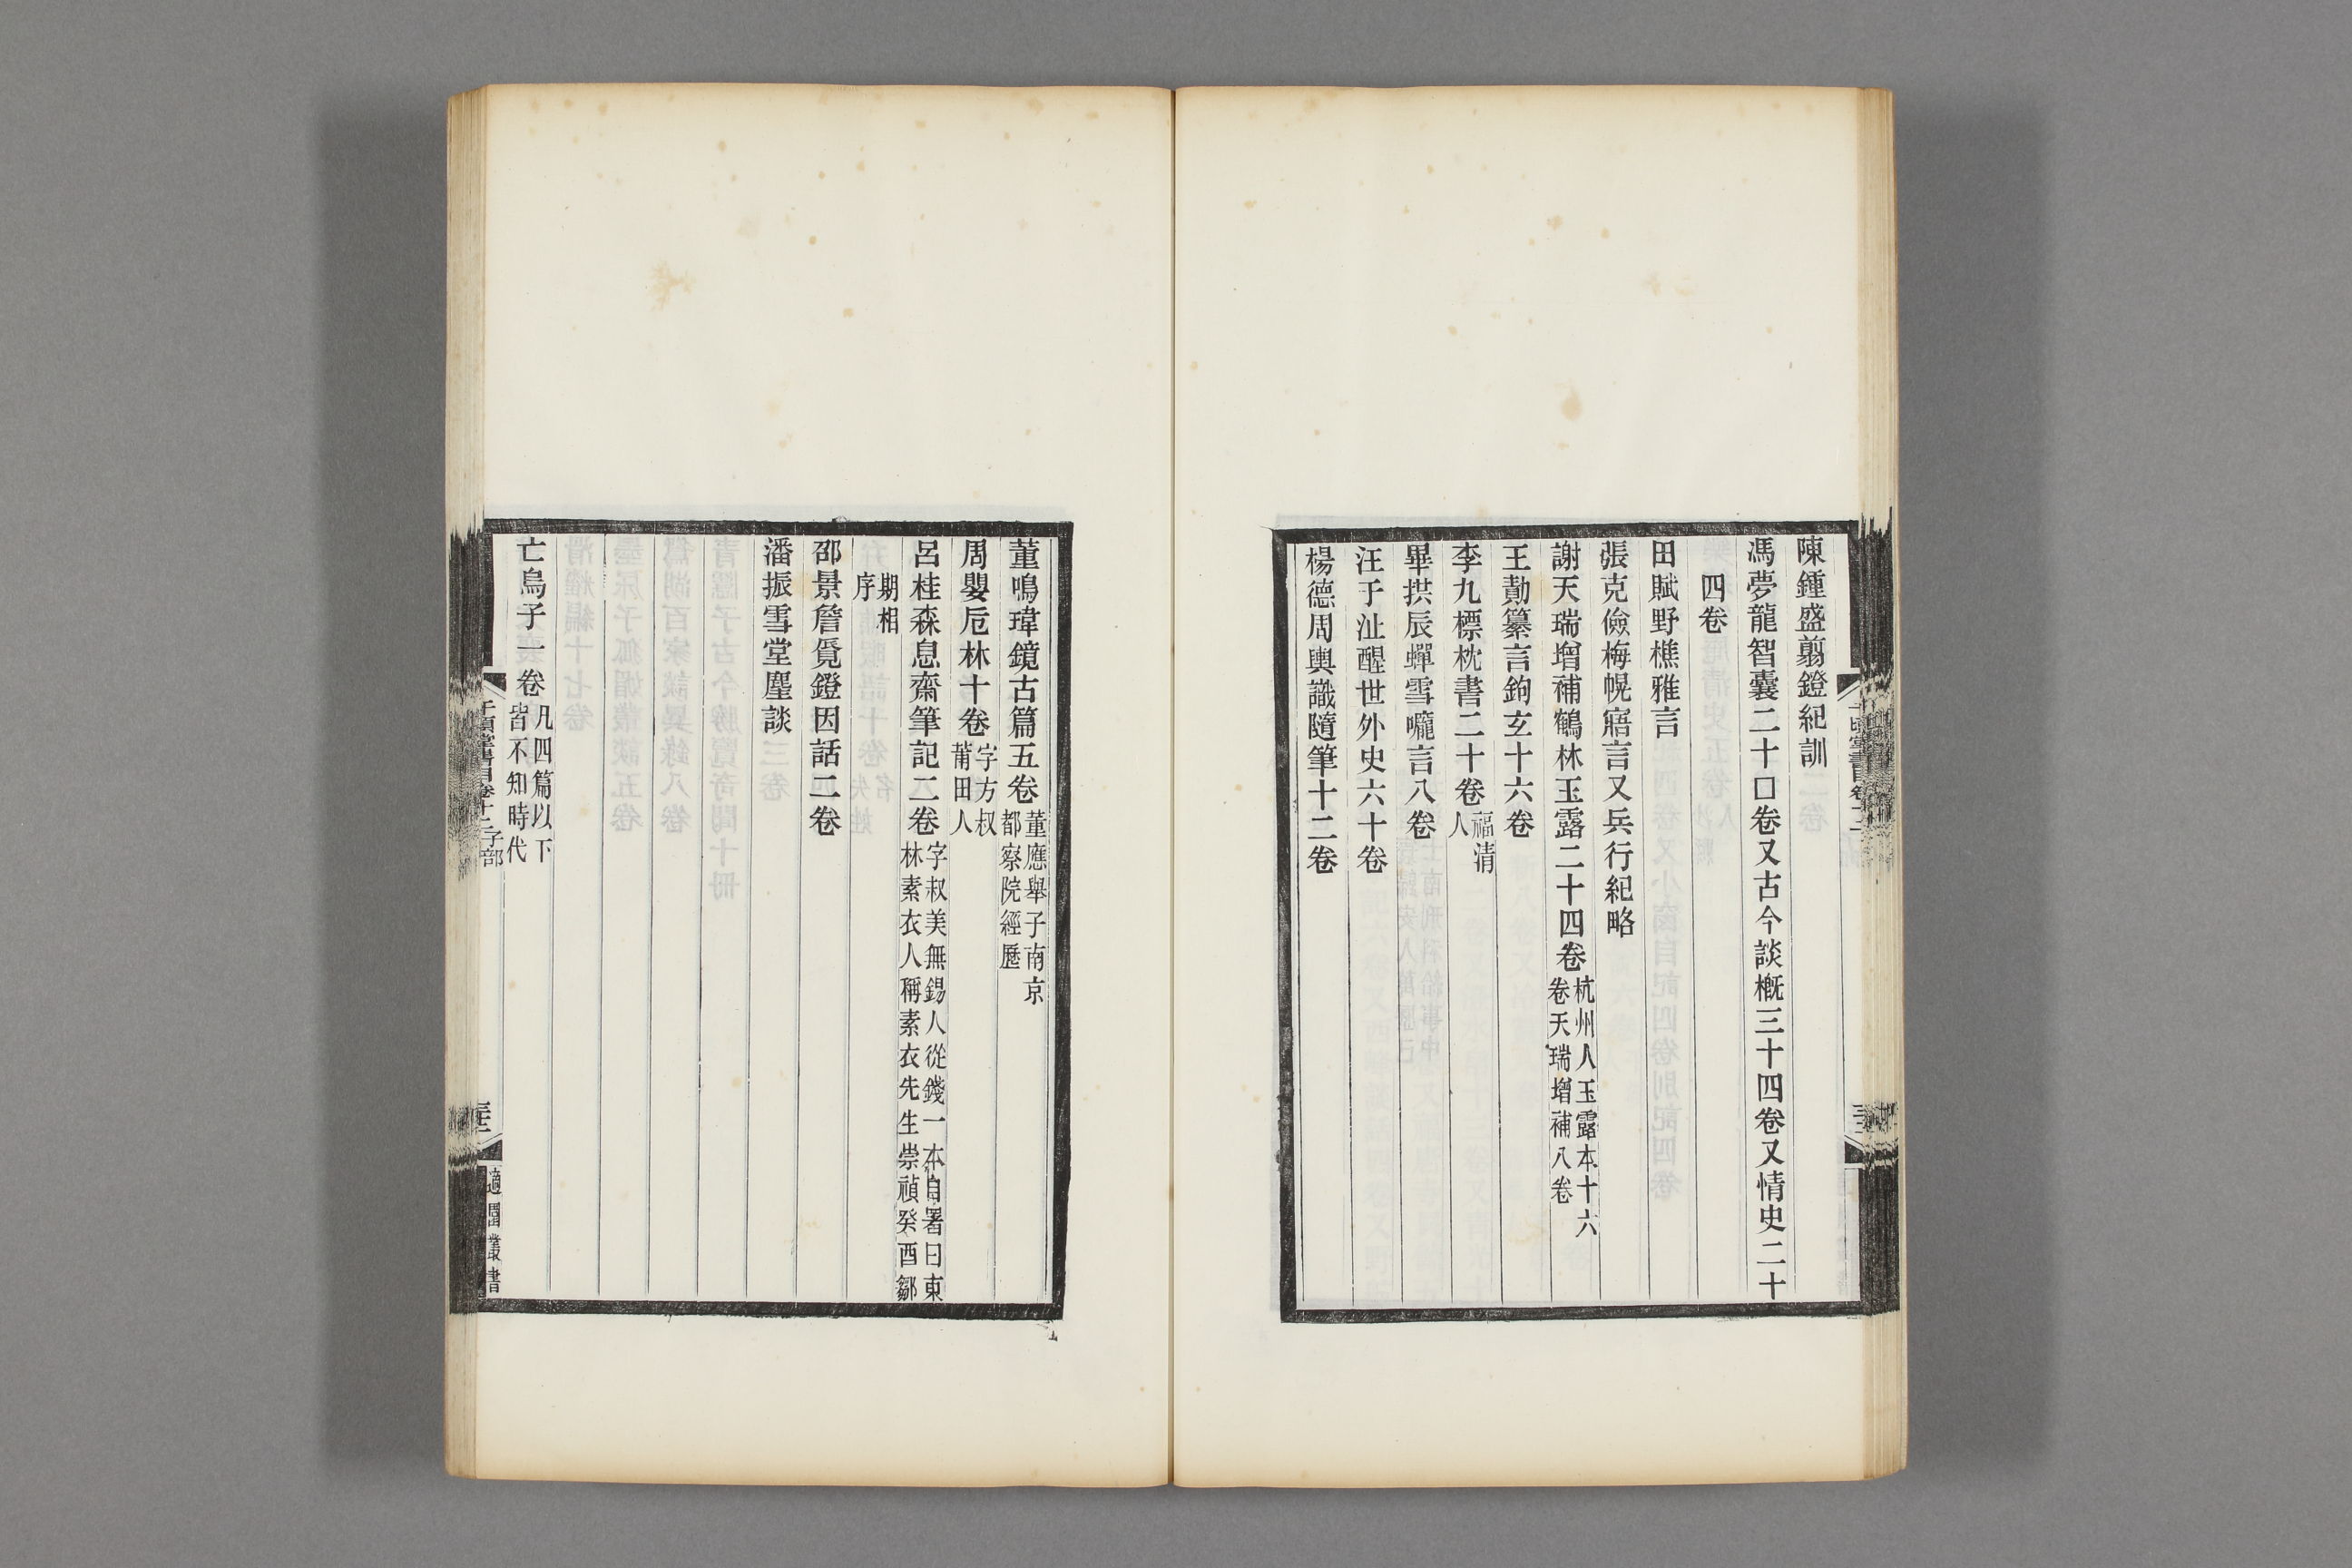 陳鍾盛翦鐙紀訓
馮夢龍智囊二十口卷又古今談概三十四卷又情史二十
四卷
田賦野樵雅言
張克儉梅幌寤言又兵行紀略
謝天瑞增補鶴林玉露二十四卷杭州人玉露本十六
卷天瑞增補八卷
王勣纂言鉤玄十六卷
李九標枕書二十卷福清
人
畢拱辰蟬雪嚨言八卷
汪于沚醒世外史六十卷
楊德周輿識隨筆十二卷
董鳴瑋鏡古篇五卷董應舉子南京
都察院經歷
周嬰卮林十卷字方叔
莆田人
呂桂森息齋筆記二卷字叔美無錫人從錢一本自署曰東
林素衣人稱素衣先生崇禎癸酉鄒
期相
序
邵景詹覓鐙因話二卷
潘振雪堂麈談
亡烏子一卷凡四篇以下
皆不知時代
千頃堂書目卷十二子部
適園叢書